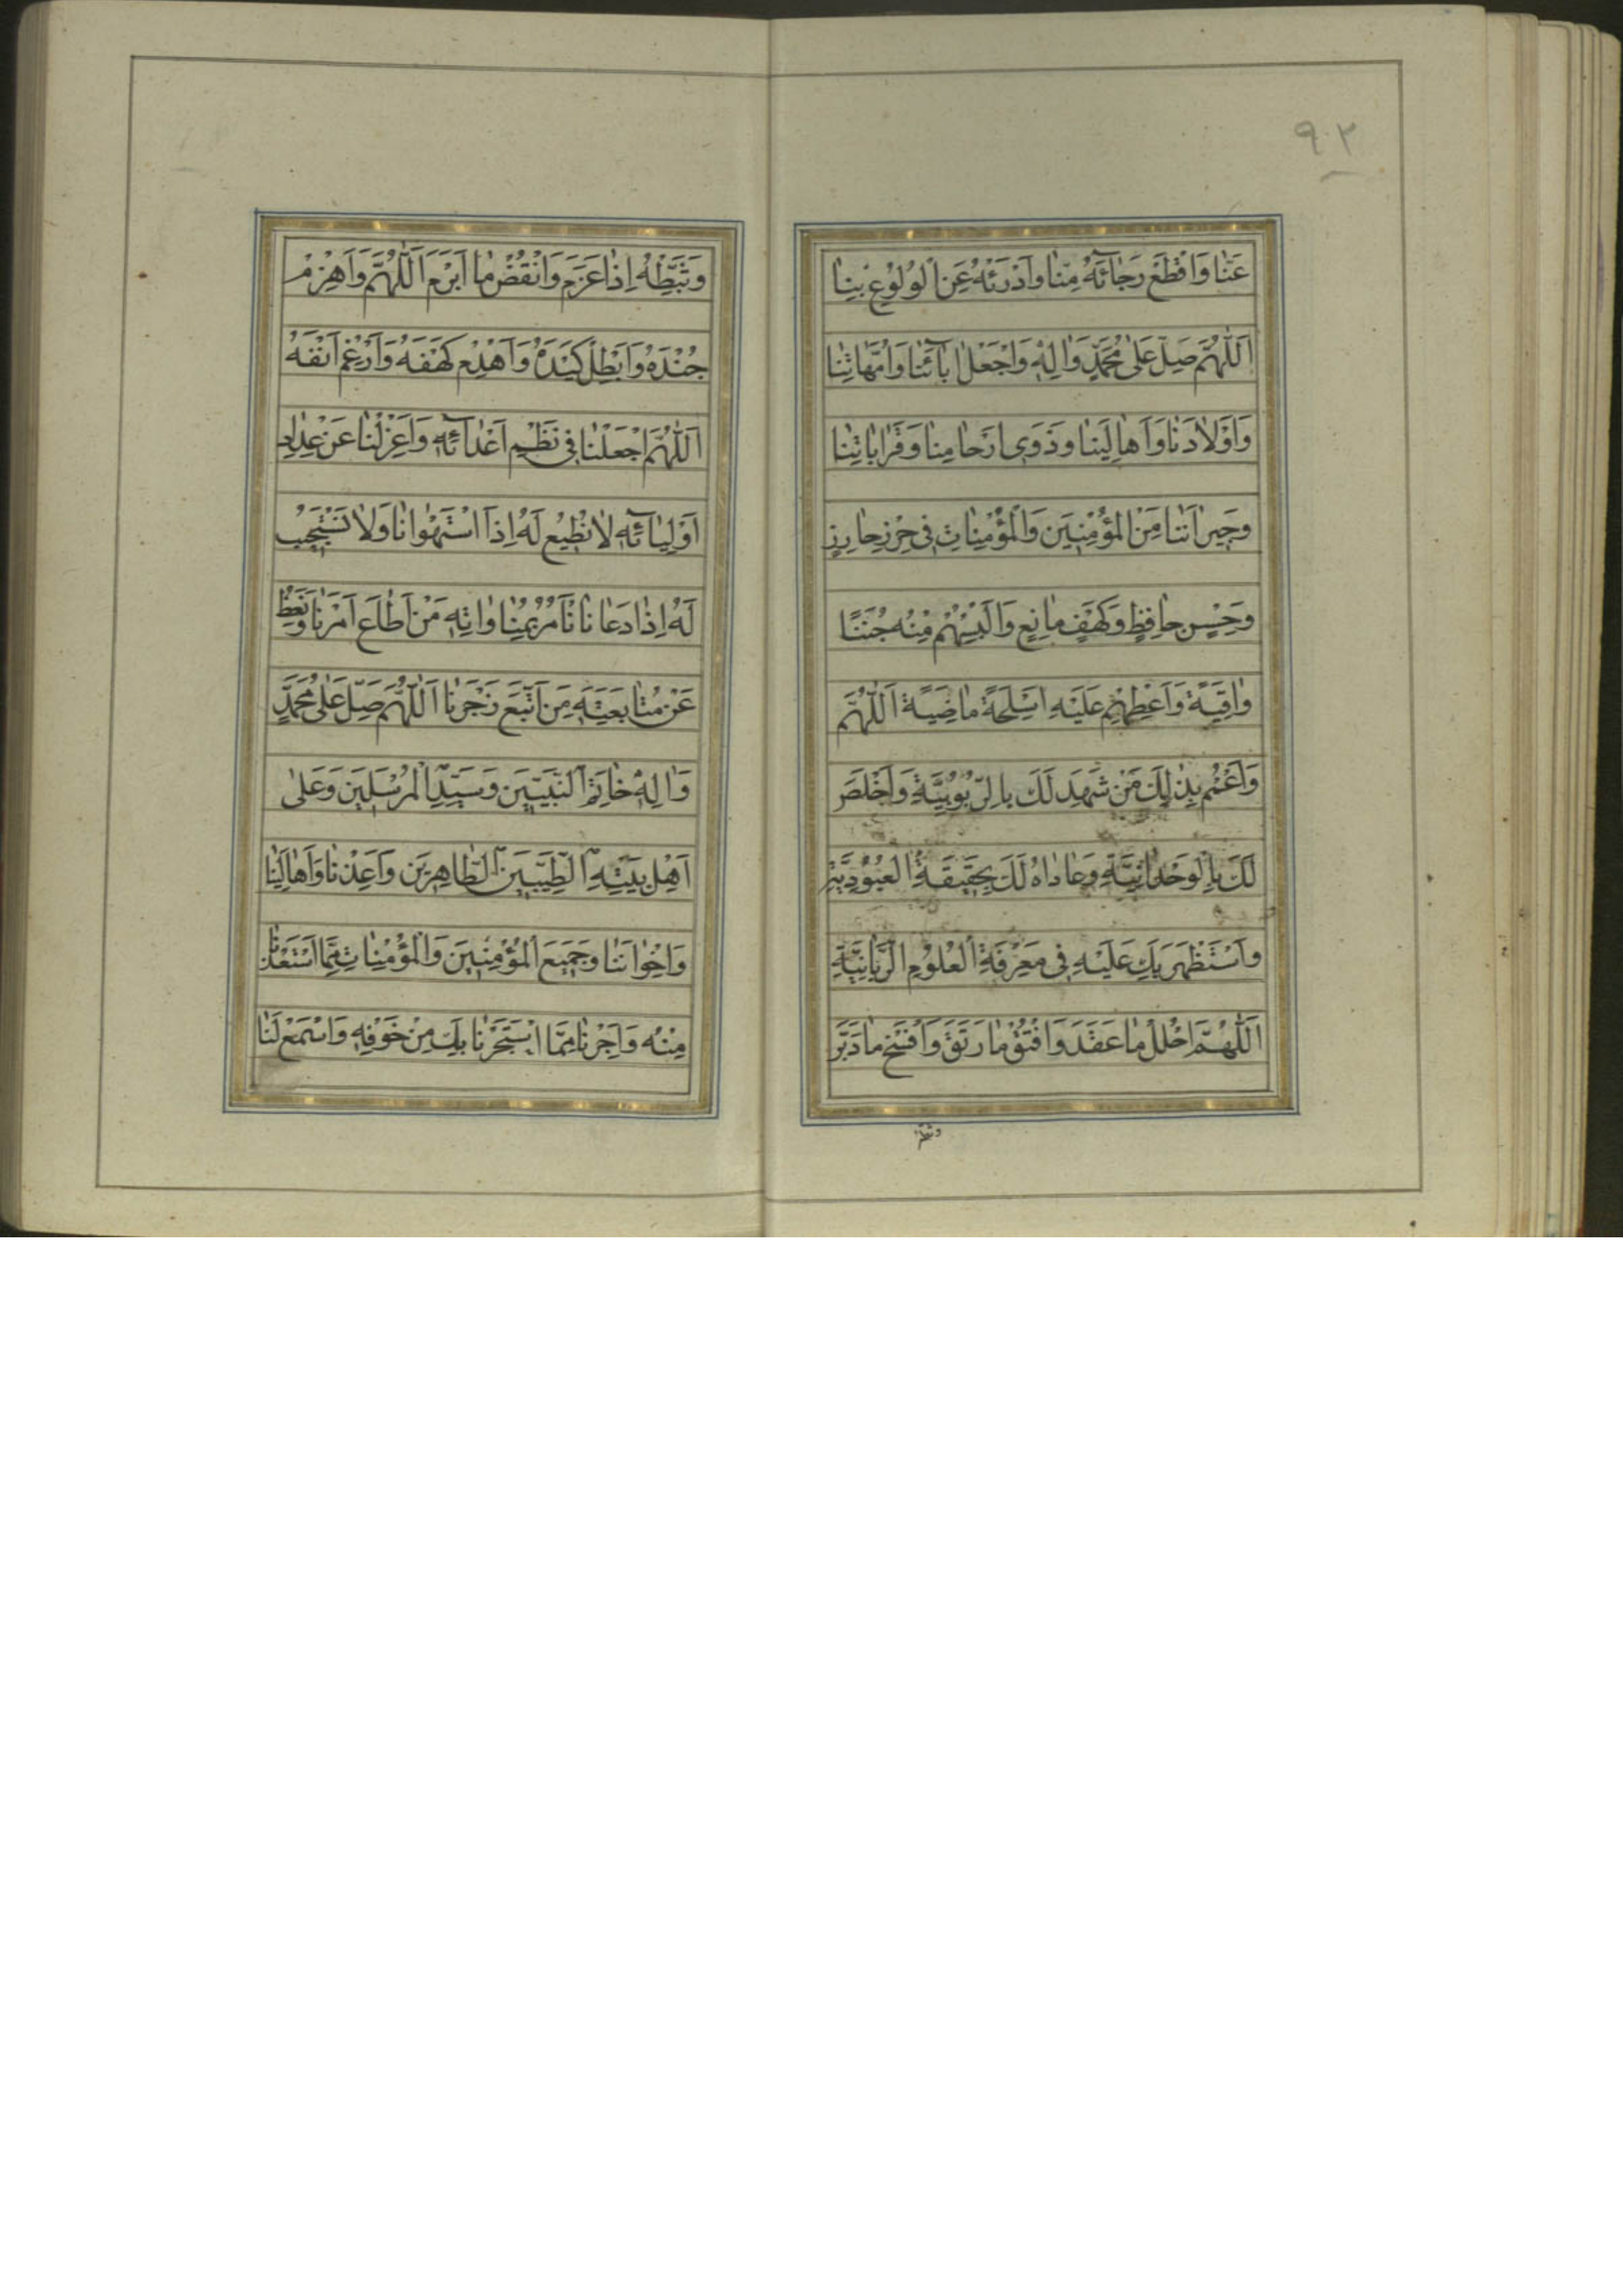 ٩٢
عَنّا وَاقْطَعْ رَجٰآئَهُ مِنّا وَادْرَئْهُ عَنِ الْوُلُوْعِ بِنٰا
اَللّٰهُمَّ صَلِّ عَلٰى مُحَمَّدٍ وَاٰلِهٖ وَاجْعَلْ اٰبآئَنٰا وَاُمَّهٰاتِنٰا
وَاَوْلٰادَنٰا وَاَهٰالِيَنا وَذَوِى اَرْحٰامِنا وَقَرٰابٰاتِنٰا
وَجِيرٰانَنا مِنَ الْمُؤْمِنِيَن وَالْمُؤْمِنٰاتِ فِى حِرْزٍ حٰارِزٍ
وَحِصْنٍ حٰافِظٍ وَكَهْفٍ مٰانِعٍ وَاَلْبِسْهُمْ مِنْهُ جُنَنًا
وٰاقِيَةً وَاَعْطِهِمْ عَلَيْهِ اَسْلِحَةً مٰاضِيَةً اَللّٰهُمَّ
وَاعْمُمْ بِذٰلِكَ مَنْ شَهِدَ لَكَ بِالرُّبُوبِيَّةِ وَاَخْلَصَ
لَكَ بِالْوَحْدٰانِيَّةِ وَعٰادٰاهُ لَكَ بِحَقِيقَةِ الْعُبُودِيَّةِ
وَاسْتَظْهَرَ بِكَ عَلَيْهِ فِى مَعْرِفَةِ الْعُلُوْمِ الرَّبّٰانِيَّةِ
اَللّٰهُمَّ احْلُلْ مٰا عَقَدَ وَافْتُقْ مٰا رَتَقَ وَافْسَخْ مٰا دَبَّرَ
وثبطه
وَثَبِّطْهُ اِذٰا عَزَمَ وَانْقُضْ مٰا اَبْرَمَ اَللّٰهُمَّ وَاهْزِمْ
جُنْدَهُ وَاَبْطِلْ كَيْدَهُ وَاهْدِمْ كَهْفَهُ وَاَرْغِمْ اَنْفَهُ
اَللّٰهُمَّ اجْعَلْنٰا فِى نَظْمِ اَعْدٰآئِهٖ وَاعْزِلْنٰا عَنْ عِدٰادِ
اَوْلِيٰآئِهٖ لٰا نُطِيْعُ لَهُ اِذَا اسْتَهْوٰانٰا وَلٰا نَسْتَجِيْبُ
لَهُ اِذٰا دَعٰانٰا نَأْمُرُ بِمُنٰاوٰاتِهٖ مَنْ اَطٰاعَ اَمْرَنٰا وَنَعِظُ
عَنْ مُتٰابَعَتِهٖ مَنِ اتَّبَعَ زَجْرَنٰا اَللّٰهُمَّ صَلِّ عَلٰى مُحَمَّدٍ
وَاٰلِهٖ خٰاتَمِ النَّبِيّيَن وَسَيِّدِ الْمُرْسَلِيَن وَعَلٰى
اَهْلِ بَيْتِهِ الطَّيِّبِيَن الطّٰاهِرِيَن وَاَعِذْنٰا وَاَهٰالِيَنٰا
وَاِخْوٰانَنٰا وَجَمِيعَ الْمُؤْمِنِيَن وَالْمُؤْمِنٰاتِ مِمَّا اسْتَعَذْنٰا
مِنْهُ وَاَجِرْنٰا مِمَّا اسْتَجَرْنٰا بِكَ مِنْ خَوْفِهٖ وَاسْمَعْ لَنٰا